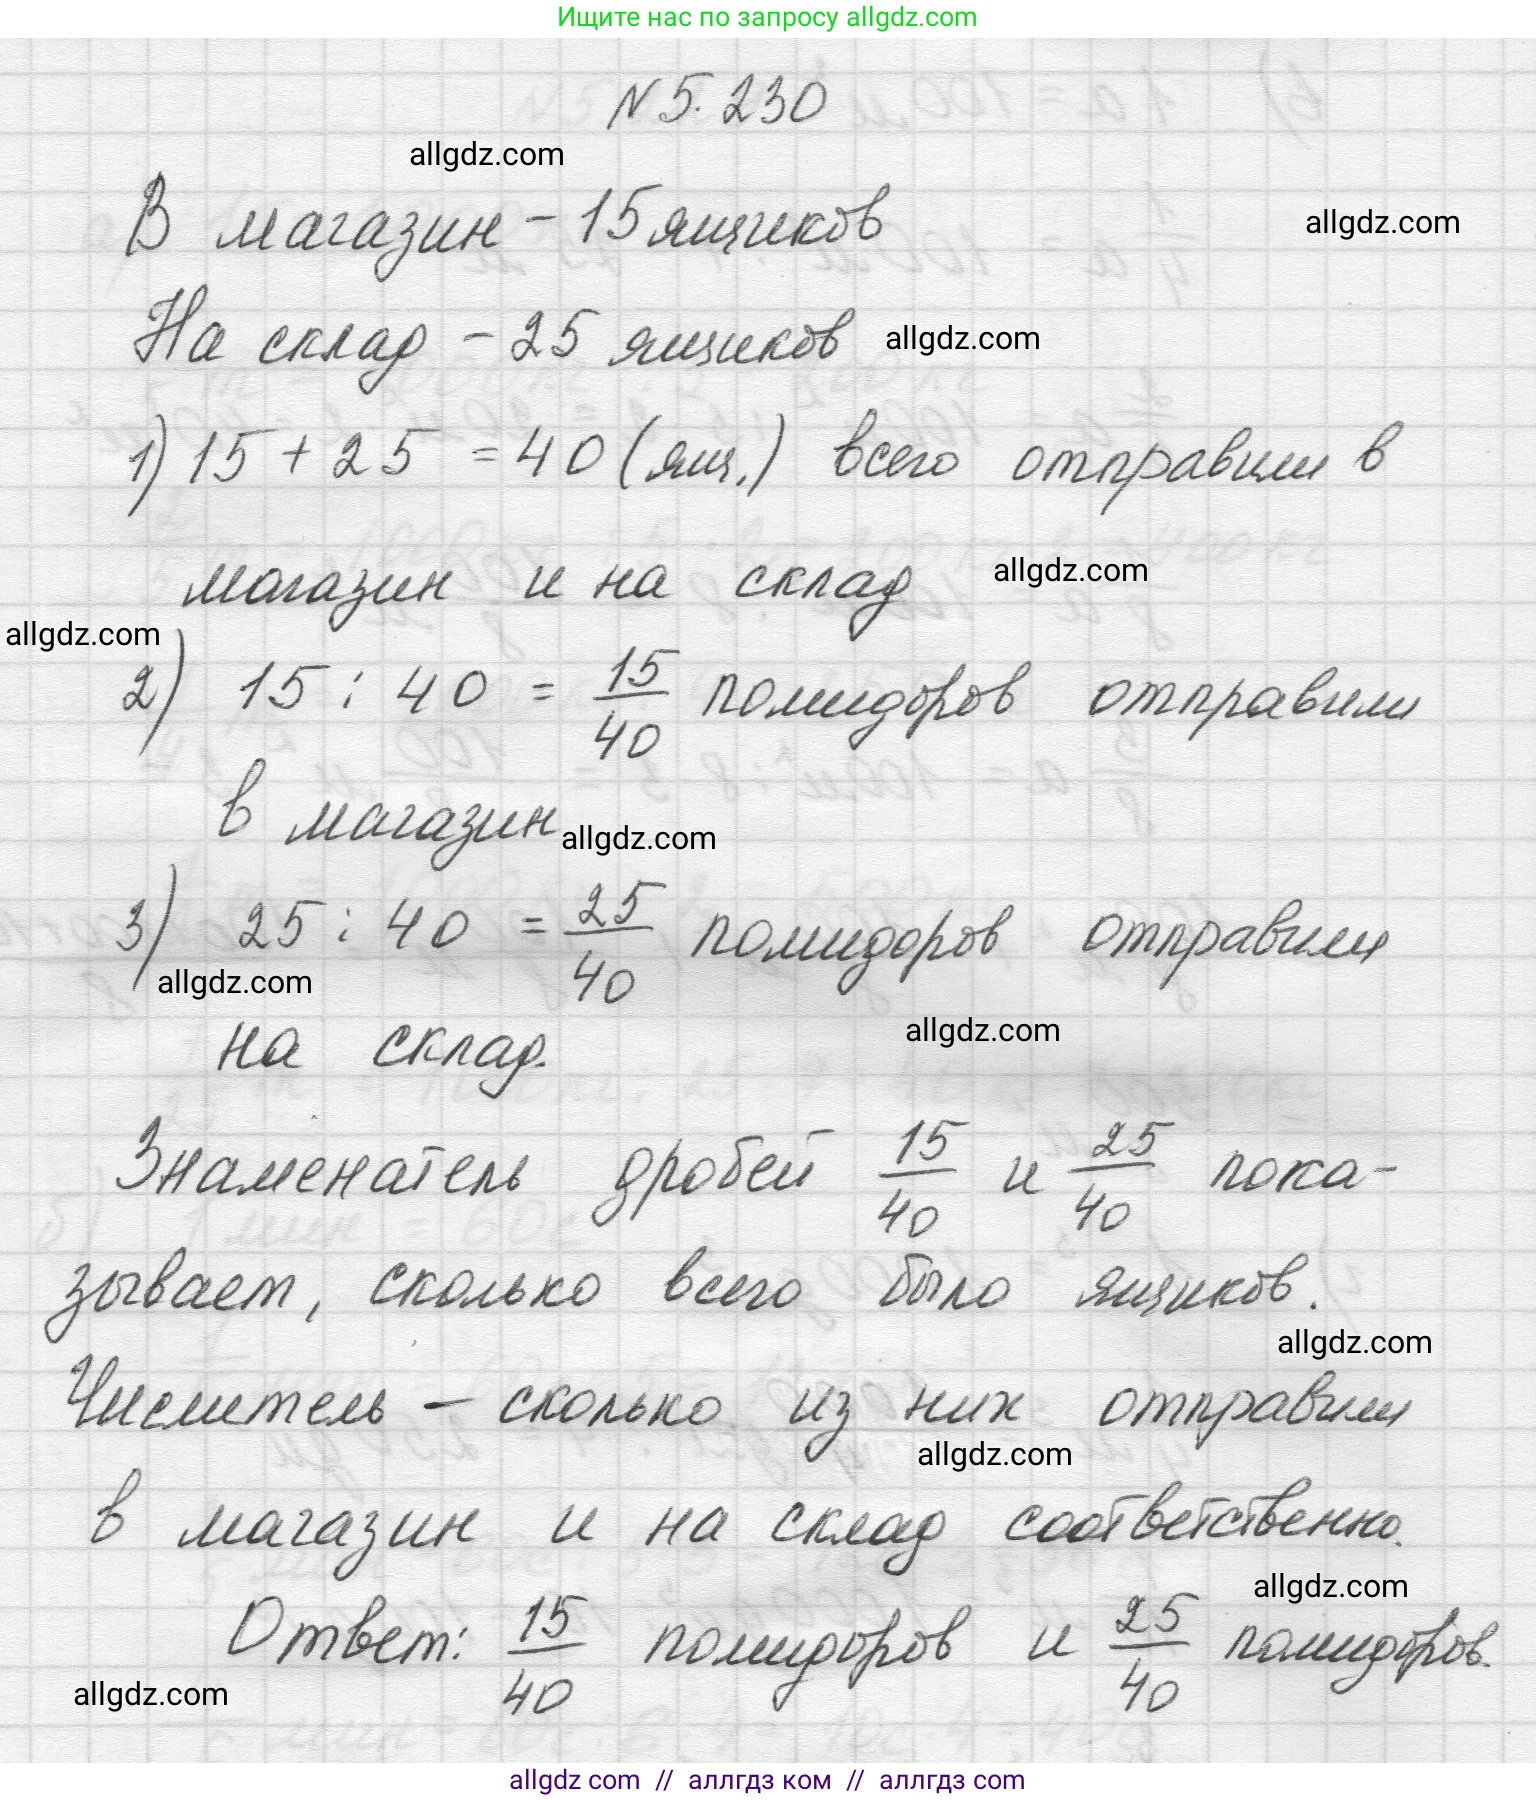 Ищите нас по запросу allgdz.com
N 5.230
allgdz.com
В магазин - 15 ящиков
allgdz.com
На склад - 25 ящиков
allgdz.com
1) 15 + 25 = 40 (ящ.) всего отправили в
магазин и на склад
allgdz.com
allgdz.com
2) 15 : 40 = 15/40 помидоров отправили
в магазин
allgdz.com
3) 25 : 40 = 25/40 помидоров отправили
allgdz.com
на склад.
allgdz.com
Знаменатель дробей 15/40 и 25/40 пока-
зывает, сколько всего было ящиков.
allgdz.com
Числитель - сколько из них отправили
allgdz.com
в магазин и на склад соответственно.
allgdz.com
Ответ: 15/40 помидоров и 25/40 помидоров.
allgdz.com
allgdz com // аллгдз ком // аллгдз com